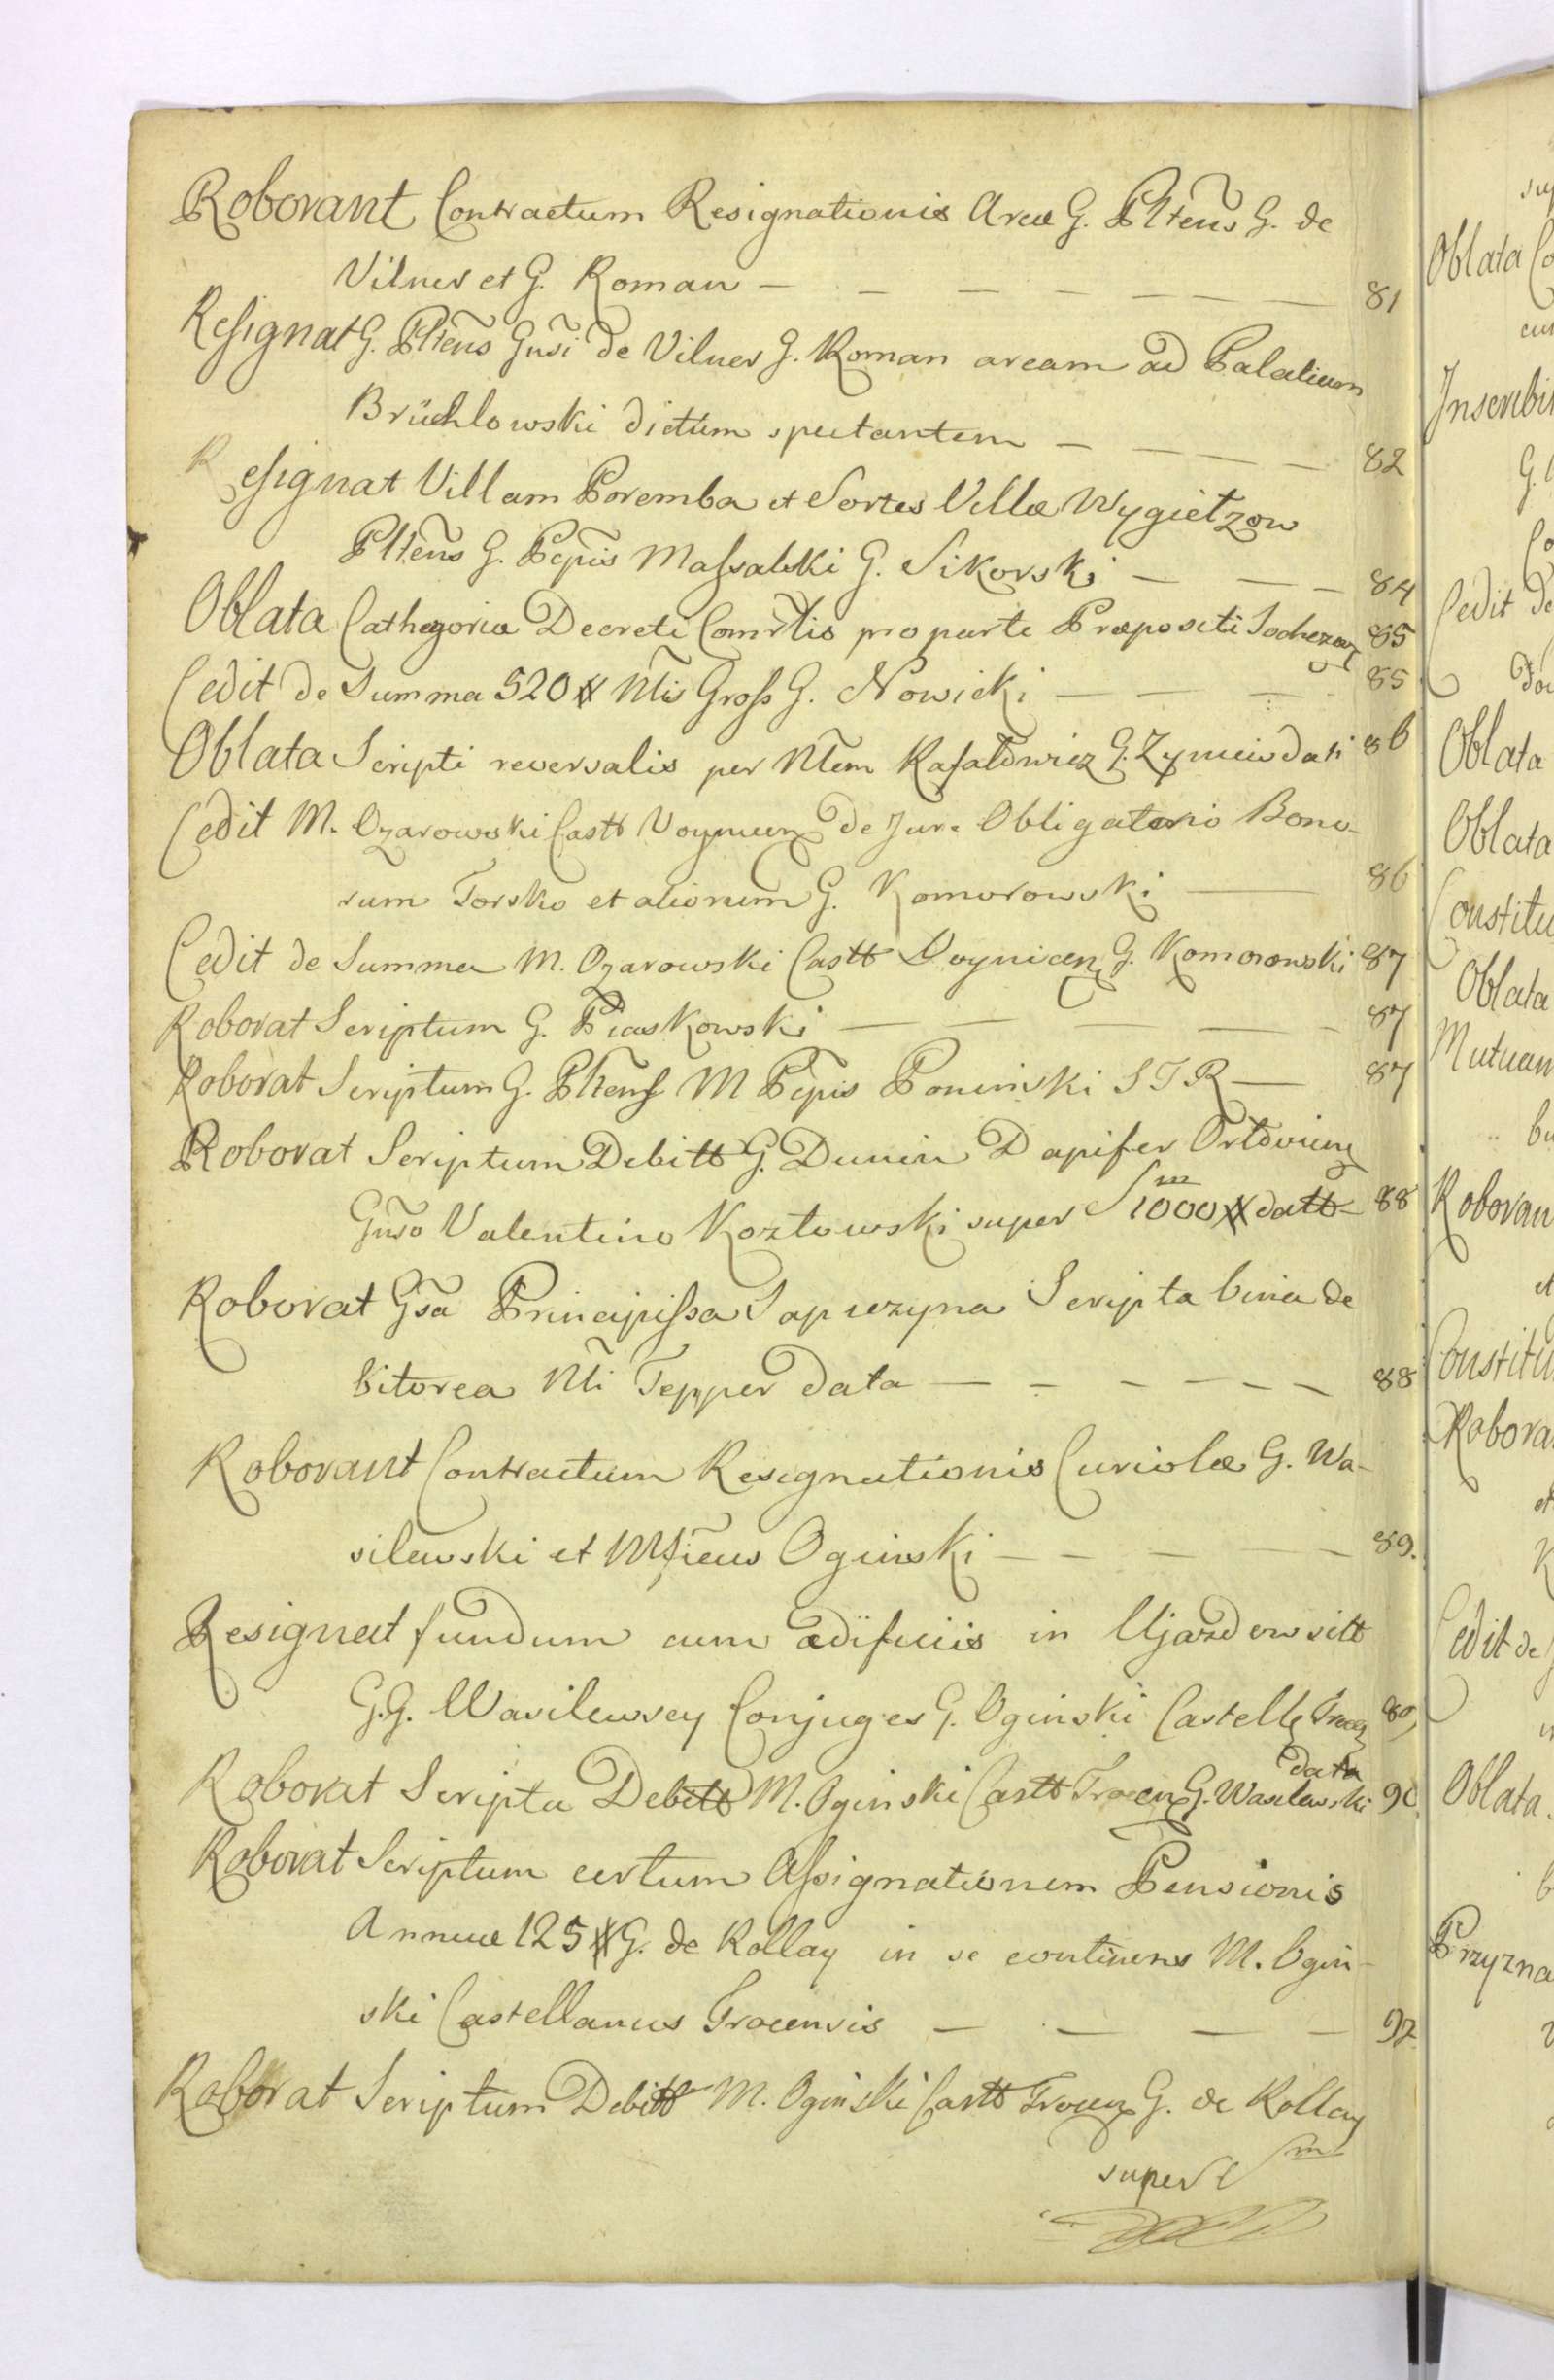 Roborant Contractum Resignationis Areæ G. Pltens G. de
Vilnes et G. Roman — 81
Resignat G. Pltens Gnsi de Vilnes G. Roman aream ad Palatium
Brüchlowski dictum spectantem — 82
Resignat Villam Poremba et Sortes Villæ Wygiełzow
Pltens G. Pepis Massalski G. Sikorski — 84
Oblata Cathegoriæ Decreti Comrlis pro parte Præpositi Sochezar 85
Cedit de Summa 520 # Nlis Gross G. Nowicki — 85
Oblata Scripti reversalis per Nlem Rafałowicz G. Zyniew dati 86
Cedit M. Ozarowski Castt Voynicen de Jure Obligatorio Bono-
rum Torsko et aliorum G. Komorowski — 86
Cedit de Summa M. Ozarowski Castt Voynicen G. Komorowski 87
Roborat Scriptum G. Piaskowski — 87
Roborat Scriptum G. Pltens M Pepis Poninski S T R — 87
Roborat Scriptum Debitt G. Dunin Dapifer Orłovien
Gnso Valentino Kozłowski super S 1000 # datt 88
Roborat Gsa Principissa Sapiezyna Scripta bina de
bitorea Nli Tepper data — 88
Roborant Contractum Resignationis Curiolæ G. Wa-
silewski et Mficus Oginski — 89.
Resignat fundum cum ædificiis in Ujazdow sitt
G.G. Wasilewscy Conjuges G. Oginski Castell Trocen 89
data
Roborat Scripta Debitt M. Oginski Castt Trocen G. Wasilewski 90
Roborat Scriptum certum Assignationem Pensionis
Annuæ 125 # G. de Kollay in se continens M. Ogin-
ski Castellanus Trocensis — 92
Roborat Scriptum Debitt M. Oginski Castt Trocen G. de Kollay
super S m
sup
Oblata Co
cum
Inscribit
G.
Co
Cedit de
Oblata
Oblata
Constitu
Oblata
Mutuan
Roboran
et
Constitu
Robora
et
Cedit de
Oblata
Przyzna